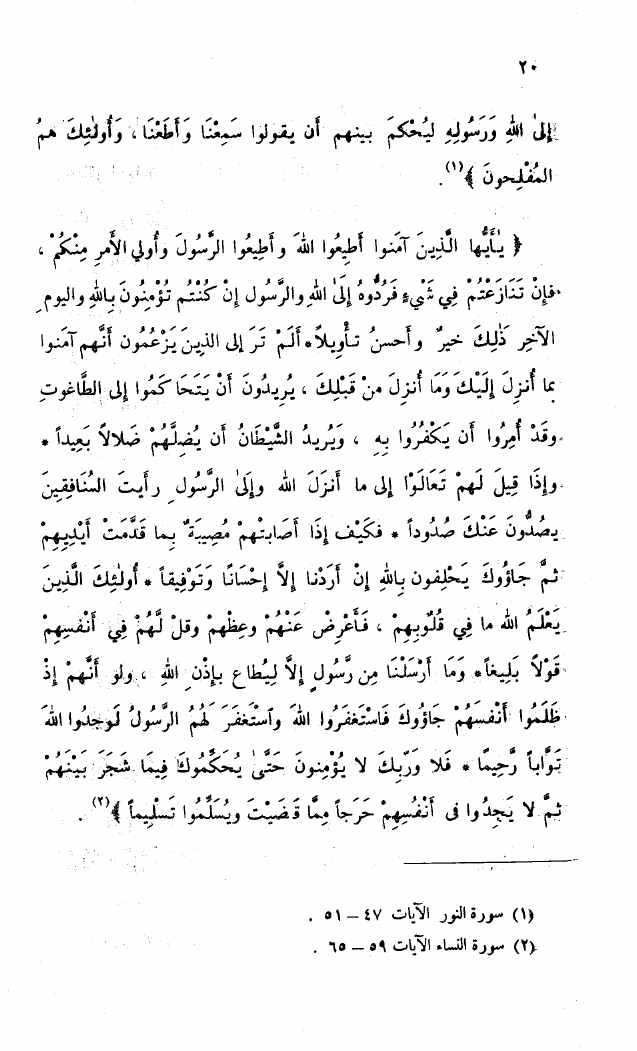 ٢٠
إلىٰ اللهِ وَرَسُولِهِ لِيُحْكمَ بينهم أن يقولوا سَمِعْنَا وَأَطَعْنَا، وَأُولٰئِكَ هم
المُفْلِحونَ ﴾(١).
﴿ يٰأَيُّها الَّذِينَ آمَنوا أطِيعُوا اللهَ وأطِيعُوا الرَّسُولَ وأُولي الأمرِ مِنكُمْ ،
فإنْ تَنَازَعْتُمْ فِي شَيْءٍ فَرُدُّوهُ إلَىٰ اللهِ والرَّسُولِ إنْ كُنْتُم تُؤْمِنُونَ بِاللهِ واليومِ
الآخِرِ ذٰلِكَ خيرٌ وأحسنُ تأْوِيلاً * ألَمْ تَرَ إلى الذِينَ يَزْعُمُون أنَّهم آمَنوا
بما أُنزِلَ إلَيْكَ وَمَا أُنزلَ منْ قَبْلِكَ ، يُرِيدُونَ أنْ يَتَحَاكَمُوا إلى الطَّاغوتِ
وقَدْ أُمِرُوا أن يَكْفُرُوا بهِ ، وَيُرِيدُ الشَّيْطَانُ أن يُضِلَّهُمْ ضَلالاً بَعِيداً *
وإذَا قِيلَ لَهمْ تَعَالَوْا إلى ما أنزَلَ الله وإلىٰ الرَّسُولِ رأيتَ المُنَافِقِينَ
يصُدُّونَ عَنْكَ صُدُوداً * فكَيْفَ إذَا أصَابتْهمْ مُصِيبَةٌ بما قدَّمَتْ أيْدِيهِمْ
ثمَّ جَاؤُوكَ يَحْلِفون بِاللهِ إنْ أرَدْنا إلاَّ إحْسَانًا وَتَوْفِيقاً * أُولٰئِكَ الَّذِينَ
يَعْلَمُ الله ما فِي قُلُوبِهِمْ ، فَأعْرِضْ عَنْهُمْ وعِظْهمْ وقلْ لَّهُمْ فِي أنْفُسِهِمْ
قَوْلاً بَلِيغاً * وَمَا أرْسَلْنَا مِن رَّسُولٍ إلاَّ لِيُطاعَ بإذْنِ اللهِ ، ولو أنَّهمْ إذْ
ظَلَمُوا أنْفسَهُمْ جَاؤُوكَ فَاسْتَغفَرُوا اللهَ وآسْتغفَرَ لَهُمُ الرَّسُولُ لَوجدُوا اللهَ
تَوَّاباً رَّحِيمًا * فَلا وَرَبِّكَ لا يُؤْمِنونَ حَتَّىٰ يُحَكِّمُوكَ فِيمَا شَجَرَ بَيْنَهُمْ
ثمَّ لا يَجِدُوا فى أنْفُسِهِمْ حَرَجاً مِّمَّا قَضَيْتَ ويُسَلِّمُوا تَسْلِيماً ﴾(٢) .
(١) سورة النور الآيات ٤٧ – ٥١ .
(٢) سورة النساء الآيات ٥٩ – ٦٥ .